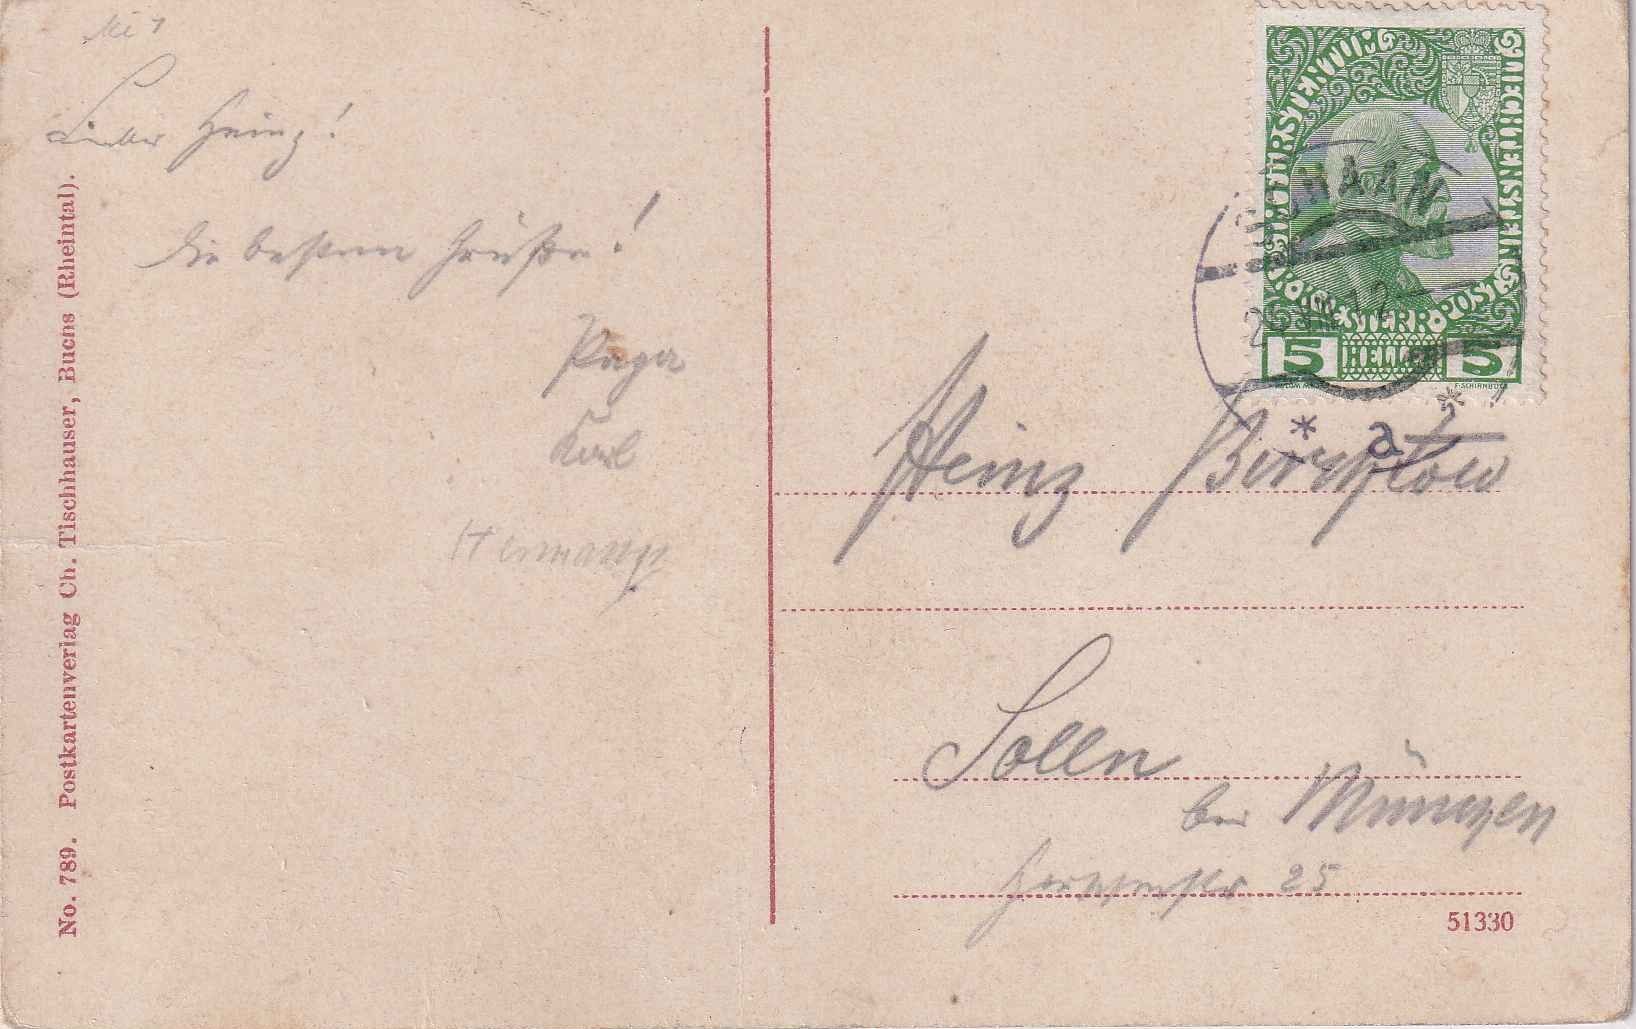 Lieber Heinz!
Die besten Grüße!
Papa
Karl
Hermann
No. 789. Postkartenverlag Ch. Tischhauser, Buchs (Rheintal).
FÜRSTENTUM LIECHTENSTEIN
K.K. ÖSTERR. POST
5 HELLER 5
SCHAAN
VIII 12
* a *
Heinz
Solln
bei München
25
51330